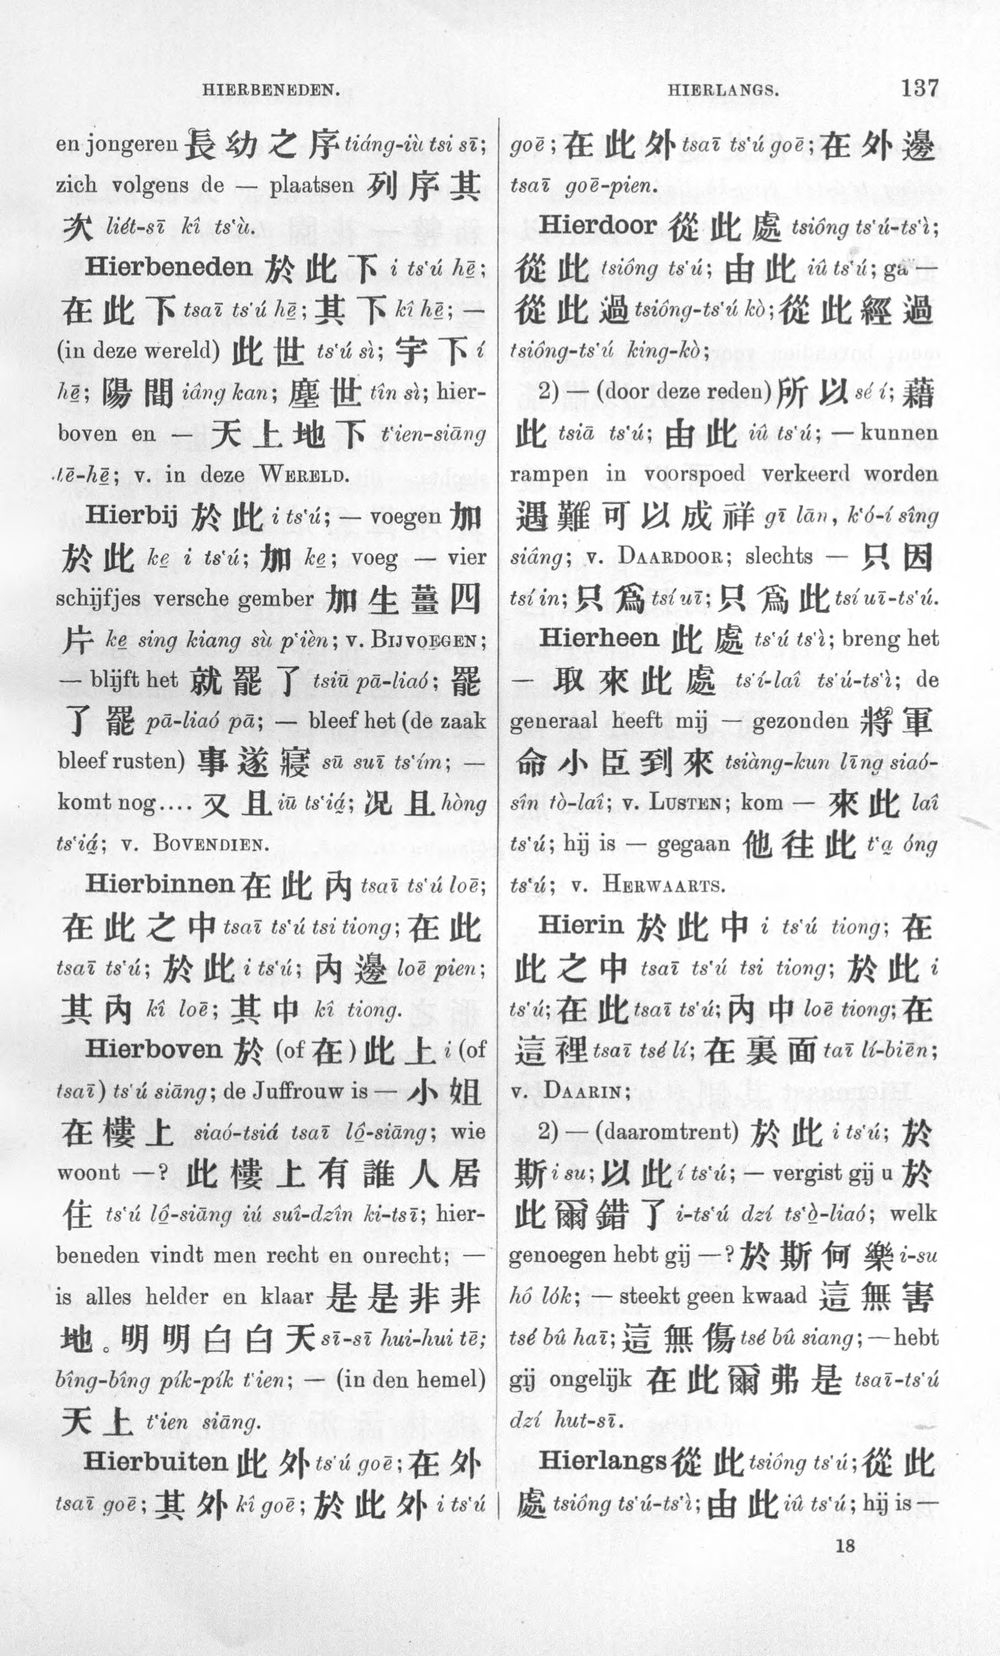 HIERBENEDEN.
HIERLANGS.
137
en jongeren 長幼之序 tiáng-iù tsi sī;
zich volgens de — plaatsen 列序其
次 liét-sī kî ts‘ù.
Hierbeneden 於此下 i ts‘ú hē̤;
在此下 tsaī ts‘ú hē̤; 其下 kî hē̤; —
(in deze wereld) 此世 ts‘ú sì; 宇下 í
hē̤; 陽間 iâng kan; 塵世 tîn sì; hier-
boven en — 天上地下 t‘ien-siāng
tē-hē̤; v. in deze WERELD.
Hierbij 於此 i ts‘ú; — voegen 加
於此 ke̤ i ts‘ú; 加 ke̤; voeg — vier
schijfjes versche gember 加生薑四
片 ke̤ sing kiang sù p‘ièn; v. BIJVOEGEN;
— blijft het 就罷了 tsiū pā-liaó; 罷
了罷 pā-liaó pā; — bleef het (de zaak
bleef rusten) 事遂寢 sū suī ts‘ím; —
komt nog.... 又且 iū ts‘iá̤; 况且 hòng
ts‘iá̤; v. BOVENDIEN.
Hierbinnen 在此內 tsaī ts‘ú loē;
在此之中 tsaī ts‘ú tsi tiong; 在此
tsaī ts‘ú; 於此 i ts‘ú; 內邊 loē pien;
其內 kî loē; 其中 kî tiong.
Hierboven 於 (of 在) 此上 i (of
tsaī) ts‘ú siāng; de Juffrouw is — 小姐
在樓上 siaó-tsiá tsaī lô̤-siāng; wie
woont —? 此樓上有誰人居
住 ts‘ú lô̤-siāng iú suî-dzîn ki-tsī; hier-
beneden vindt men recht en onrecht; —
is alles helder en klaar 是是非非
地。明明白白天 sī-sī hui-hui tē;
bîng-bîng pík-pík t‘ien; — (in den hemel)
天上 t‘ien siāng.
Hierbuiten 此外 ts‘ú goē; 在外
tsaī goē; 其外 kî goē; 於此外 i ts‘ú
goē; 在此外 tsaī ts‘ú goē; 在外邊
tsaī goē-pien.
Hierdoor 從此處 tsiông ts‘ú-ts‘ì;
從此 tsiông ts‘ú; 由此 iû ts‘ú; ga —
從此過 tsiông-ts‘ú kò; 從此經過
tsiông-ts‘ú king-kò;
2) — (door deze reden) 所以 sé í; 藉
此 tsiā ts‘ú; 由此 iû ts‘ú; — kunnen
rampen in voorspoed verkeerd worden
遇難可以成祥 gī lān, k‘ó-í sîng
siáng; v. DAARDOOR; slechts — 只因
tsí in; 只爲 tsí uī; 只爲此 tsí uī-ts‘ú.
Hierheen 此處 ts‘ú ts‘ì; breng het
— 取來此處 ts‘í-laî ts‘ú-ts‘ì; de
generaal heeft mij — gezonden 將軍
命小臣到來 tsiàng-kun līng siaó-
sîn tò-laî; v. LUSTEN; kom — 來此 laî
ts‘ú; hij is — gegaan 他往此 t‘a̤ óng
ts‘ú; v. HERWAARTS.
Hierin 於此中 i ts‘ú tiong; 在
此之中 tsaī ts‘ú tsi tiong; 於此 i
ts‘ú; 在此 tsaī ts‘ú; 內中 loē tiong; 在
這裡 tsaī tsé lí; 在裏面 taī lí-biēn;
v. DAARIN;
2) — (daaromtrent) 於此 i ts‘ú; 於
斯 i su; 以此 í ts‘ú; — vergist gij u 於
此爾錯了 i-ts‘ú dzí ts‘ò̤-liaó; welk
genoegen hebt gij —? 於斯何樂 i-su
hô lók; — steekt geen kwaad 這無害
tsé bû haī; 這無傷 tsé bû siang; — hebt
gij ongelijk 在此爾弗是 tsaī-ts‘ú
dzí hut-sī.
Hierlangs 從此 tsiông ts‘ú; 從此
處 tsiông ts‘ú-ts‘ì; 由此 iû ts‘ú; hij is —
18